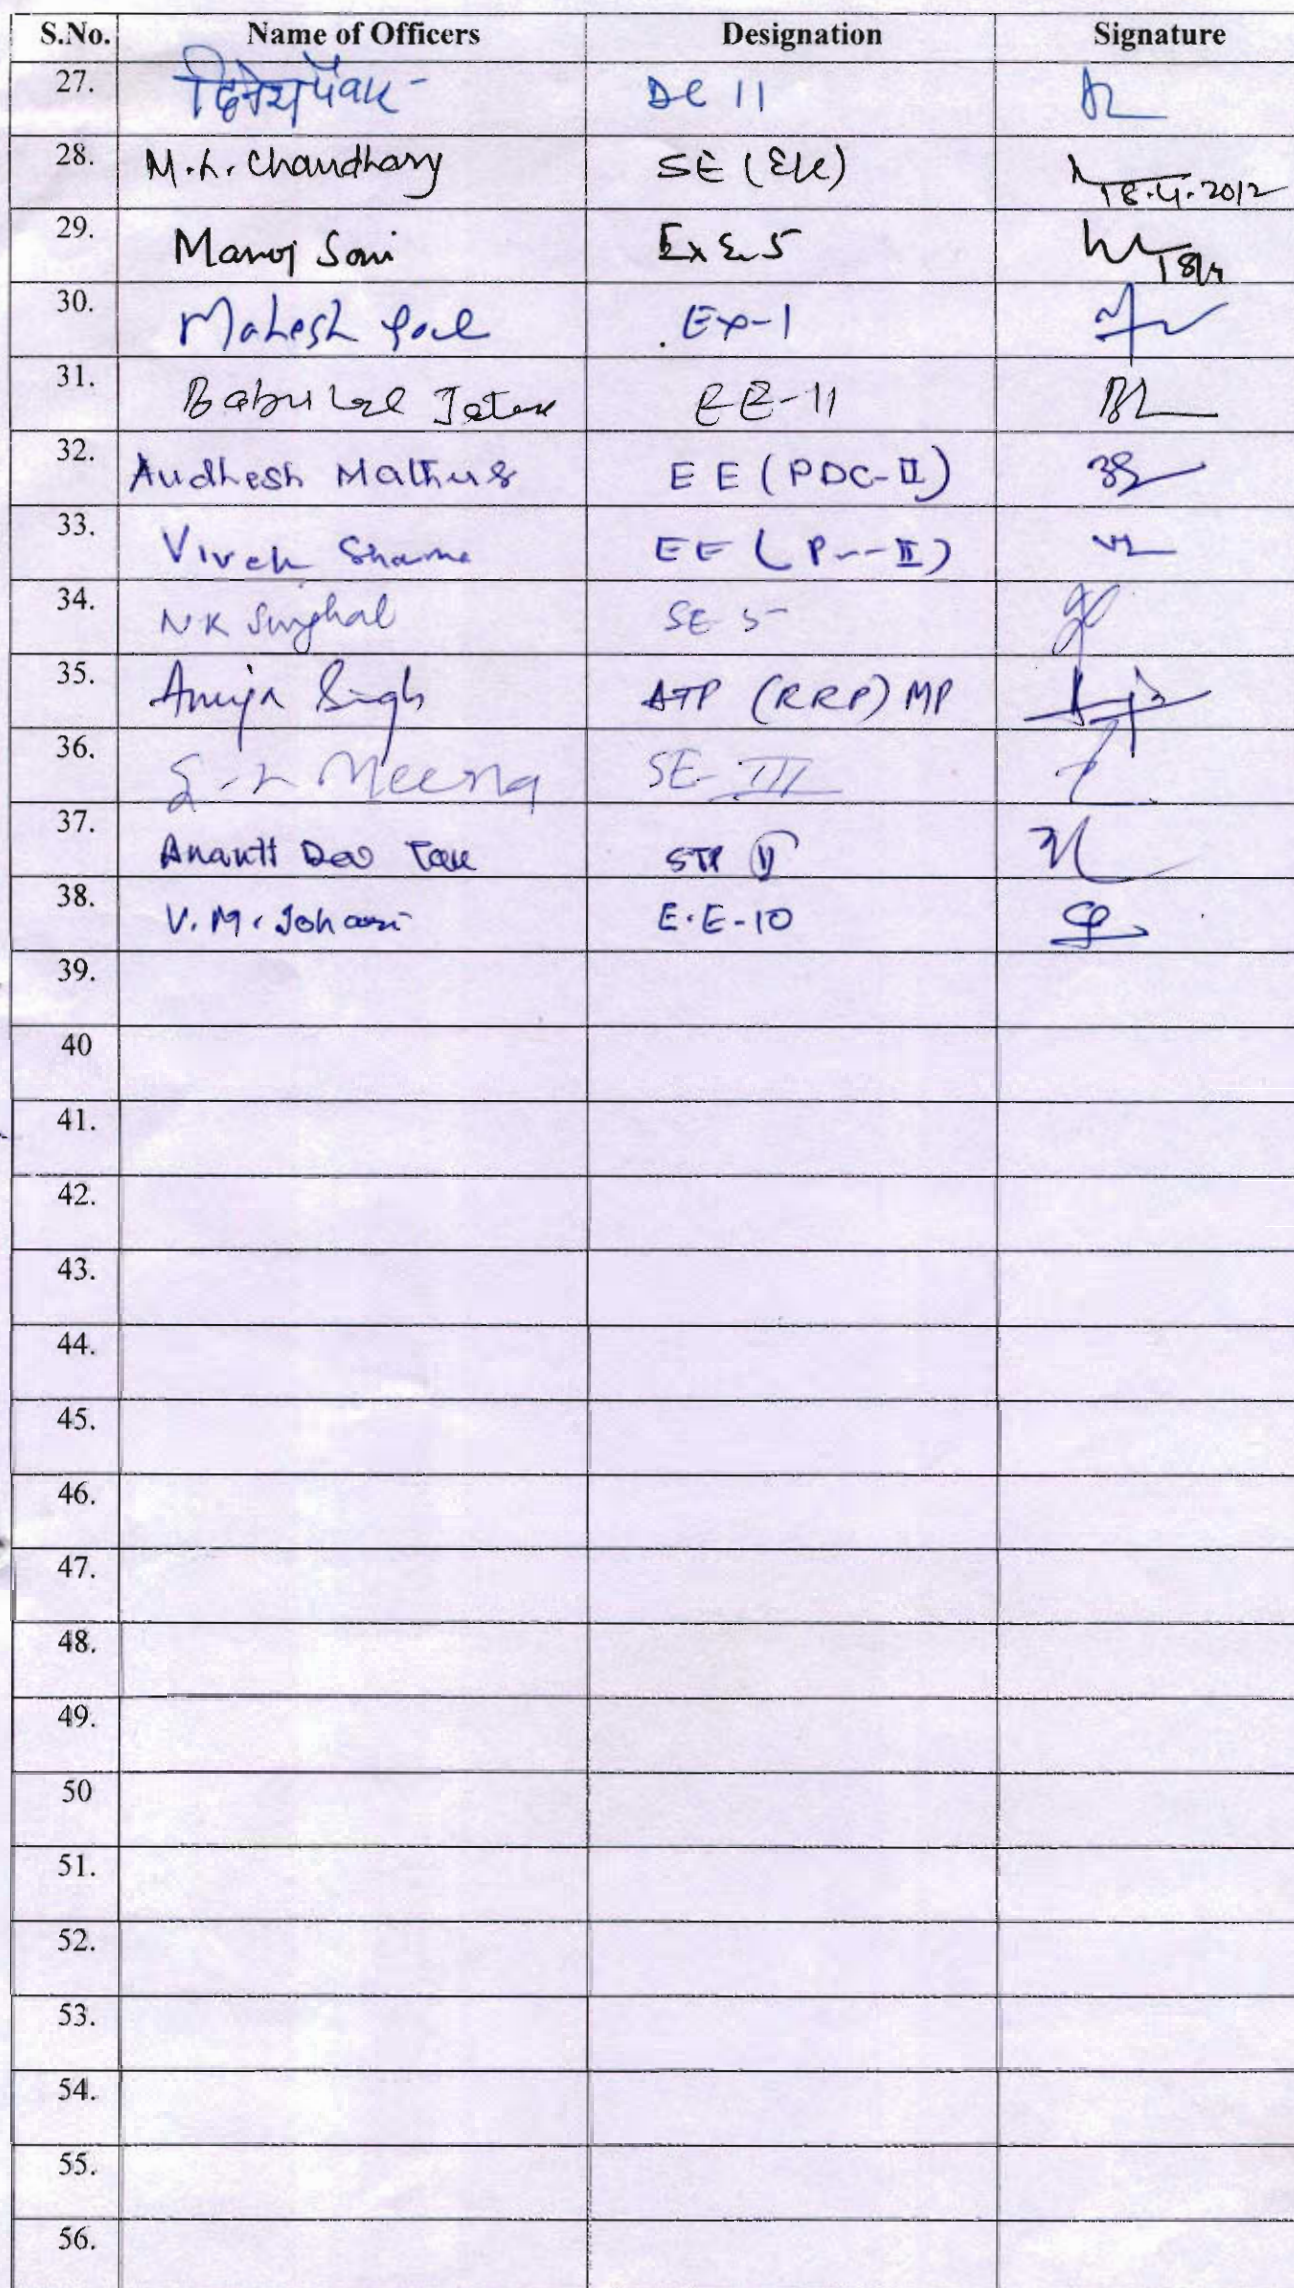 S.No. Name of Officers Designation Signature
27. दिनेश DC 11
28. M.L. Chaudhary SE (Ele) 18.4.2012
29. Manoj Soni Ex E 5 18/4
30. Mahesh Ex-1
31. Babulal EE-11
32. Audhesh Mathur EE (PDC-II)
33. Vivek Sharma EE (P---II)
34. NK Singhal SE 5
35. Anuja Singh ATP (RRP) MP
36. Meena SE III
37. Anantt Dev Tak STP
38. V.M. Johari E.E-10
39.
40
41.
42.
43.
44.
45.
46.
47.
48.
49.
50
51.
52.
53.
54.
55.
56.